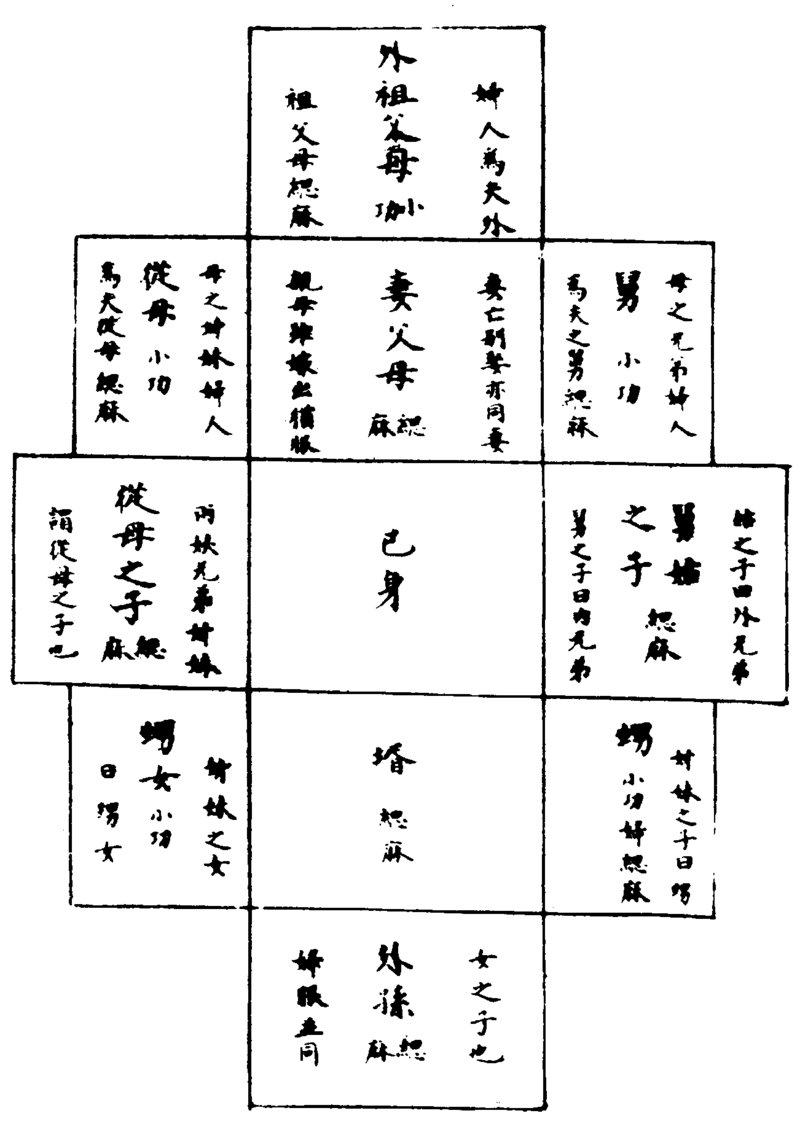 婦人為夫外
外祖父母
小功
祖父母緦麻
母之兄弟婦人
舅 小功
為夫之舅緦麻
妻亡別娶亦同妻
妻父母
緦麻
親母雖嫁出猶服
母之姊妹婦人
從母 小功
為夫從母緦麻
姑之子曰外兄弟
舅姑
之子
緦麻
舅之子曰內兄弟
己身
兩姨兄弟姊妹
從母之子
緦麻
謂從母之子也
姊妹之子曰甥
甥
小功婦緦麻
壻
緦麻
姊妹之女
甥女小功
曰甥女
女之子也
外孫
緦麻
婦服並同